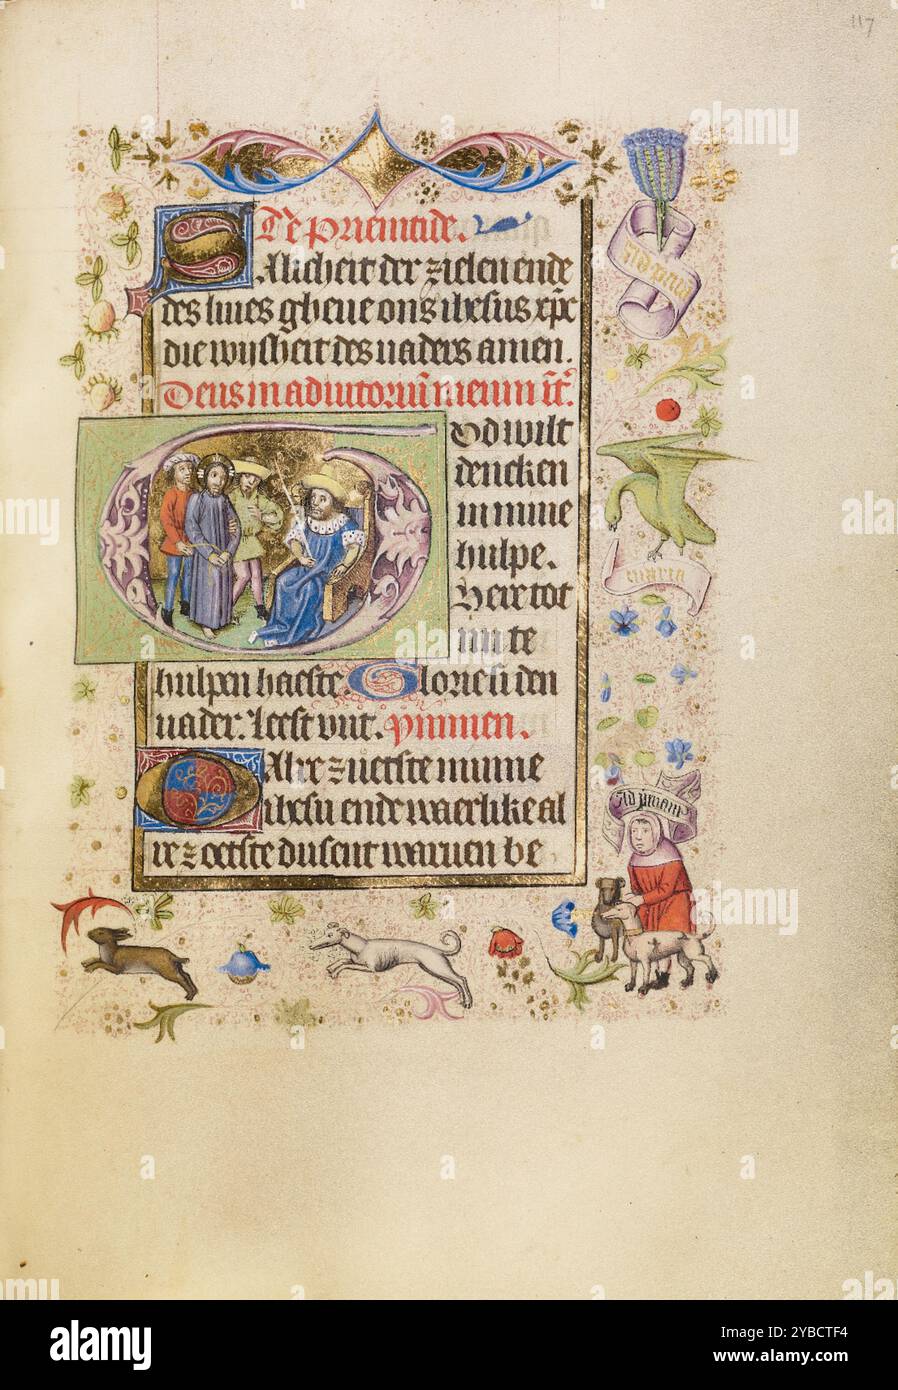 117
Te priemtide.
Salicheit der zielen ende
des liues gheue ons ihesus xpc
die wijsheit des uaders amen.
Deus in adiutoriū meum ītē
God wilt
dencken
in mine
hulpe.
Here tot
mi te
hulpen haeste. Glorie si den
uader. Leest vut. ymmen.
Alre zuetste mume
ihesu ende waerlike al
re zoetste dusent waruen be
maria
Ad priem
alamy
Image ID: 2YBCTF4
www.alamy.com